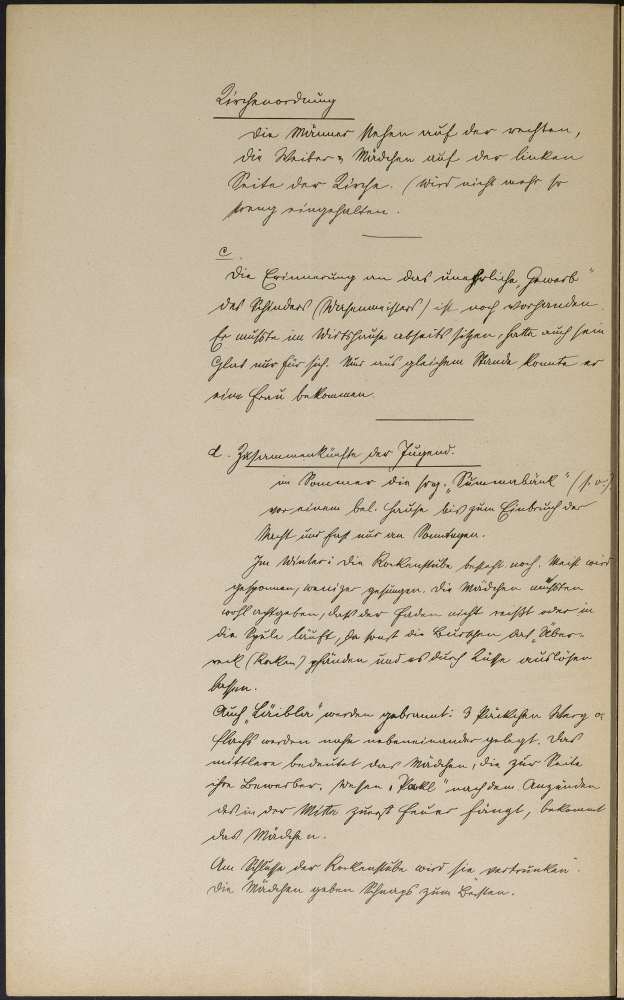 Kirchenordnung
Die Männer stehen auf der rechten,
die Weiber u. Mädchen auf der linken
Seite der Kirche. (Wird nicht mehr so
streng eingehalten.
c
Die Erinnerung an das unehrliche „Gewerb"
des Schinders (Wasenmeisters) ist noch vorhanden
Er mußte im Wirtshause abseits sitzen, hatte auch sein
Glas nur für sich. Nur aus gleichem Stande konnte er
eine Frau bekommen.
d. Zusammenkünfte der Jugend.
im Sommer die sog. „Summabänk" (s. o.)
vor einem bel. Hause bis zum Einbruch der
Nacht und fast nur an Sonntagen.
Im Winter: die Rockenstube besteht noch. Meist wird
gesponnen, weniger gesungen. Die Mädchen mußten
wohl achtgeben, daß der Faden nicht reißt oder in
die Spule läuft, da sonst die Burschen das
(Rocken) pfänden und es durch Küsse auslösen
lassen.
Auch werden gebrannt: 3 Päckchen Werg od
Flachs werden nahe nebeneinander gelegt. Das
mittlere bedeutet das Mädchen, die zur Seite
ihre Bewerber. Wessen „Packl" nach dem Anzünden
des in der Mitte zuerst Feuer fängt, bekommt
das Mädchen.
Am Schlusse der Rockenstube wird sie „vertrunken".
Die Mädchen geben Schnaps zum Besten.